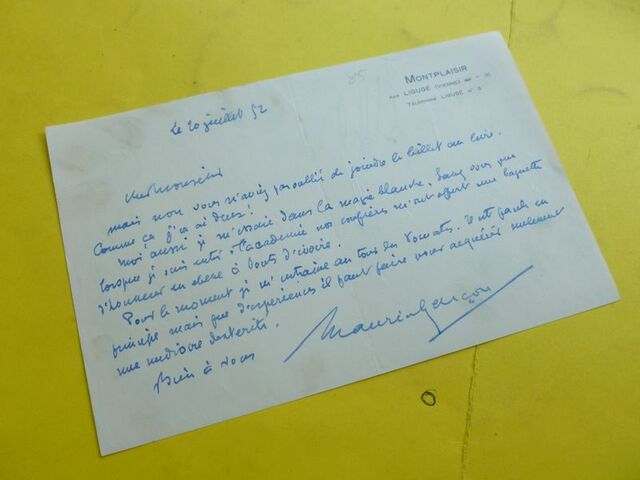 85
MONTPLAISIR
PAR LIGUGÉ (VIENNE)
TÉLÉPHONE LIGUGÉ N° 3
Le 20 juillet 52
cher Monsieur
mais non vous n'aviez pas oublié de joindre le billet au livre.
Comme ça j'en ai deux!
Moi aussi je m'essaie dans la magie blanche. Savez vous que
lorsque je suis entré à l'académie nos confrères m'ont offert une baguette
d'honneur en ébène à bouts d'ivoire.
Pour le moment je m'entraine au tour des tomates. Il est facile en
principe mais que d'expériences il faut faire pour acquérir seulement
une médiocre dextérité.
Bien à vous
Maurice Garçon